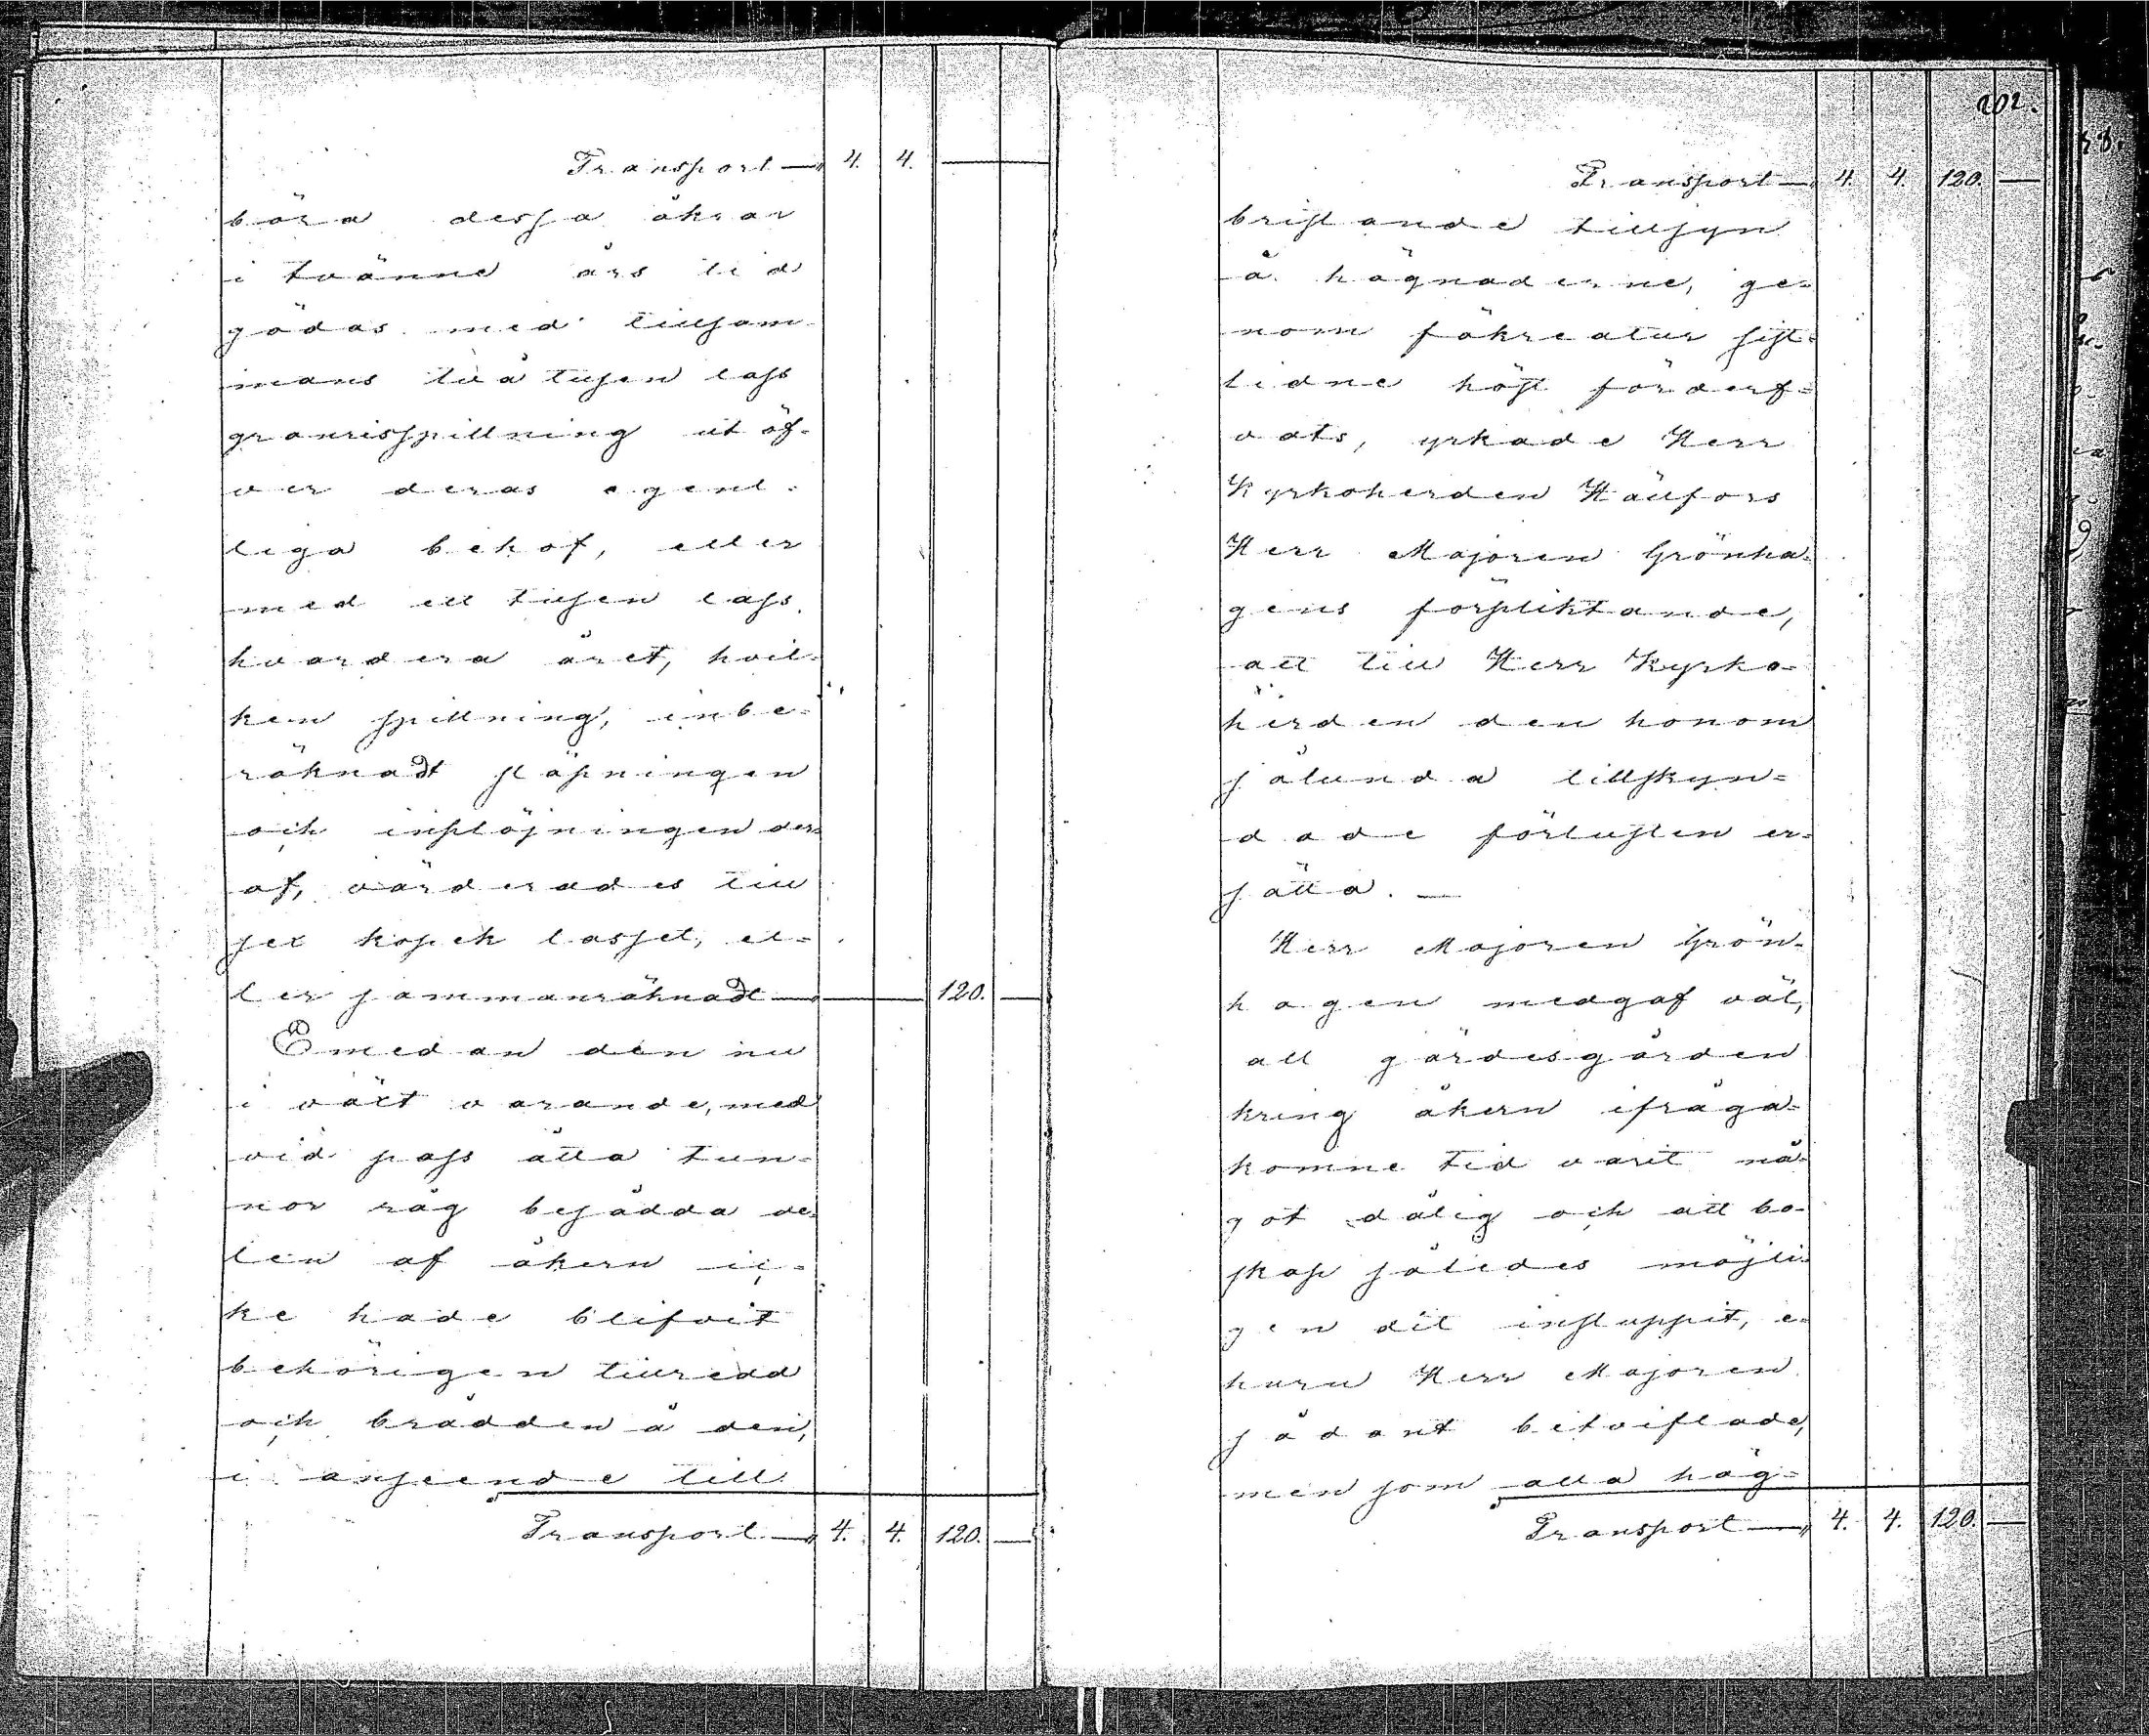 Transport — 4. 4. —
böra dessa åkrar
i tvänne års tid
gödas med tillsam-
mans två tusen lass
granrisspillning utöf-
ver deras egent-
liga behof, eller
med ett tusen lass
hvardera året, hvil-
ken spillning, inbe-
räknadt släpningen
och inplöjningen der-
af, värderades till
sex kopek lasset, el-
ler sammanräknadt — — 120. —
Emedan den nu
i växt varande, med
vid pass åtta tun-
nor råg besådda de-
len af åkern ic-
ke hade blifvit
behörigen tillredd
och brådden å den,
i anseende till
Transport — 4. 4. 120. —
202.
Transport — 4. 4. 120. —
bristande tillsyn
å hägnaderne, ge-
nom fäkreatur sist-
lidne höst förderf-
vats, yrkade Herr
Kyrkoherden Häufors
Herr Majoren Grönha-
gens förpliktande,
att till Herr Kyrko-
herden den honom
sålunda tillskyn-
dade förlusten er-
sätta. —
Herr Majoren Grön-
hagen medgaf väl,
att gärdesgården
kring åkern ifråga-
komne tid varit nå-
got dålig och att bo-
skap således möjli-
gen dit insluppit, e-
huru Herr Majoren
sådant betviflade,
men som alla häg-
Transport — 4. 4. 120. —